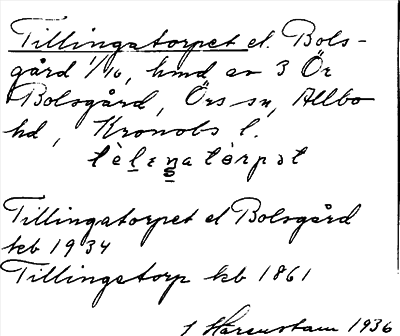 Tillingatorpet el. Bols-
gård 1/16, hmd av 3 Ör
Bolsgård, Örs sn, Allbo
hd, Kronobs l.
Tillingatorpet el Bolsgård
kb 1934
Tillingstorp kb 1861
1936